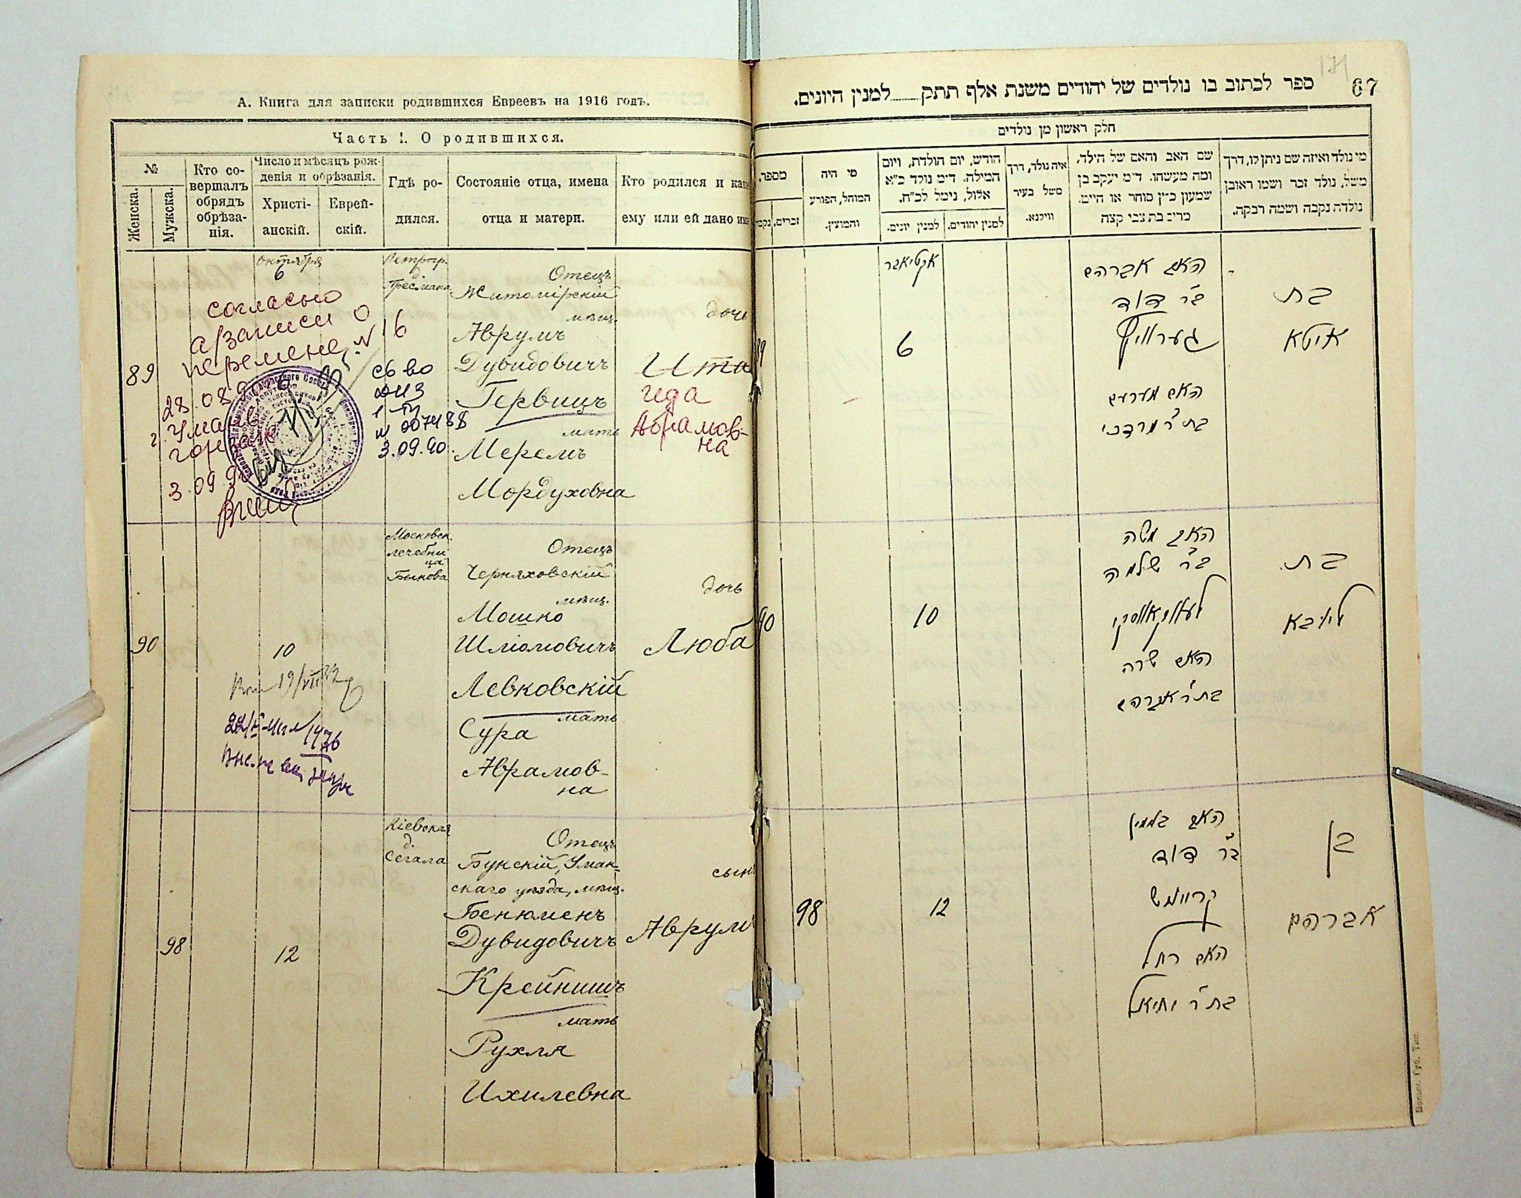 А. Книга для записки родившихся Евреевъ на 1916 годъ.
Часть I. О родившихся.
№
Женска.
Мужска.
Кто со-
вершалъ
обрядъ
обрѣза-
нія.
Число и мѣсяцъ рож-
денія и обрѣзанія.
Христі-
анскій.
Еврей-
скій.
Гдѣ ро-
дился.
Состояніе отца, имена
отца и матери.
Кто родился и как
ему или ей дано им
89
октября
6
согласно
записи о
перемене № 16
28.08.90
г. Умань
3.09.90
Петрогр.
д.
св во
1-
№ 007488
3.09.90.
Отецъ
Житомірскій
мѣщ.
Аврумъ
Дувидовичъ
Гервицъ
мать
Меремъ
Мордуховна
дочь
Ита
Ида
Абрамов-
на
90
10
19/VII
Московск.
лечебни
ца
Быкова
Отецъ
Черняховскій
мѣщ.
Мошко
Шліомовичъ
Левковскій
мать
Сура
Аврамов-
на
дочь
Люба
98
12
Кіевская
д.
Сегала
Отецъ
Букскій, Уман-
скаго уѣзда, мѣщ.
Бенюменъ
Дувидовичъ
Крейнишъ
мать
Рухля
Ихилевна
сынъ
Аврумъ
171
67
ספר לכתוב בו נולדים של יהודים משנת אלף תתק למנין היונים.
חלק ראשון מן נולדים
מי נולד ואיזה שם ניתן לו, דרך
משל, נולד זכר ושמו ראובן
נולדה נקבה ושמה רבקה.
שם האב והאם של הילד,
ומה מעשהו. ד״מ יעקב בן
שמעון כ״ץ סוחר או חייט.
מרים בת צבי קצה
איה נולד, דרך
משל בעיר
ווילנא.
חודש, יום הולדת, ויום
המילה. ד״מ נולד כ״א
אלול, נימל לכ״ח.
למנין יהודים.
למנין יונים.
מי היה
המוהל, הפורע
והמוצץ.
מספר,
זכרים.
נקב
אקטיאבר
6
האב אברהם
ב״ר דוד
גערוויץ
האם מערעם
בת ר׳ מרדכי
בת
איטא
90
10
האב משה
ב״ר שלמה
לעווקאווסקי
האם שרה
בת ר׳ אברהם
בת.
ליובא
98
12
האב בנימין
ב״ר דוד
קריינעש
האם רחל
בת ר׳ יחיאל
בן
אברהם